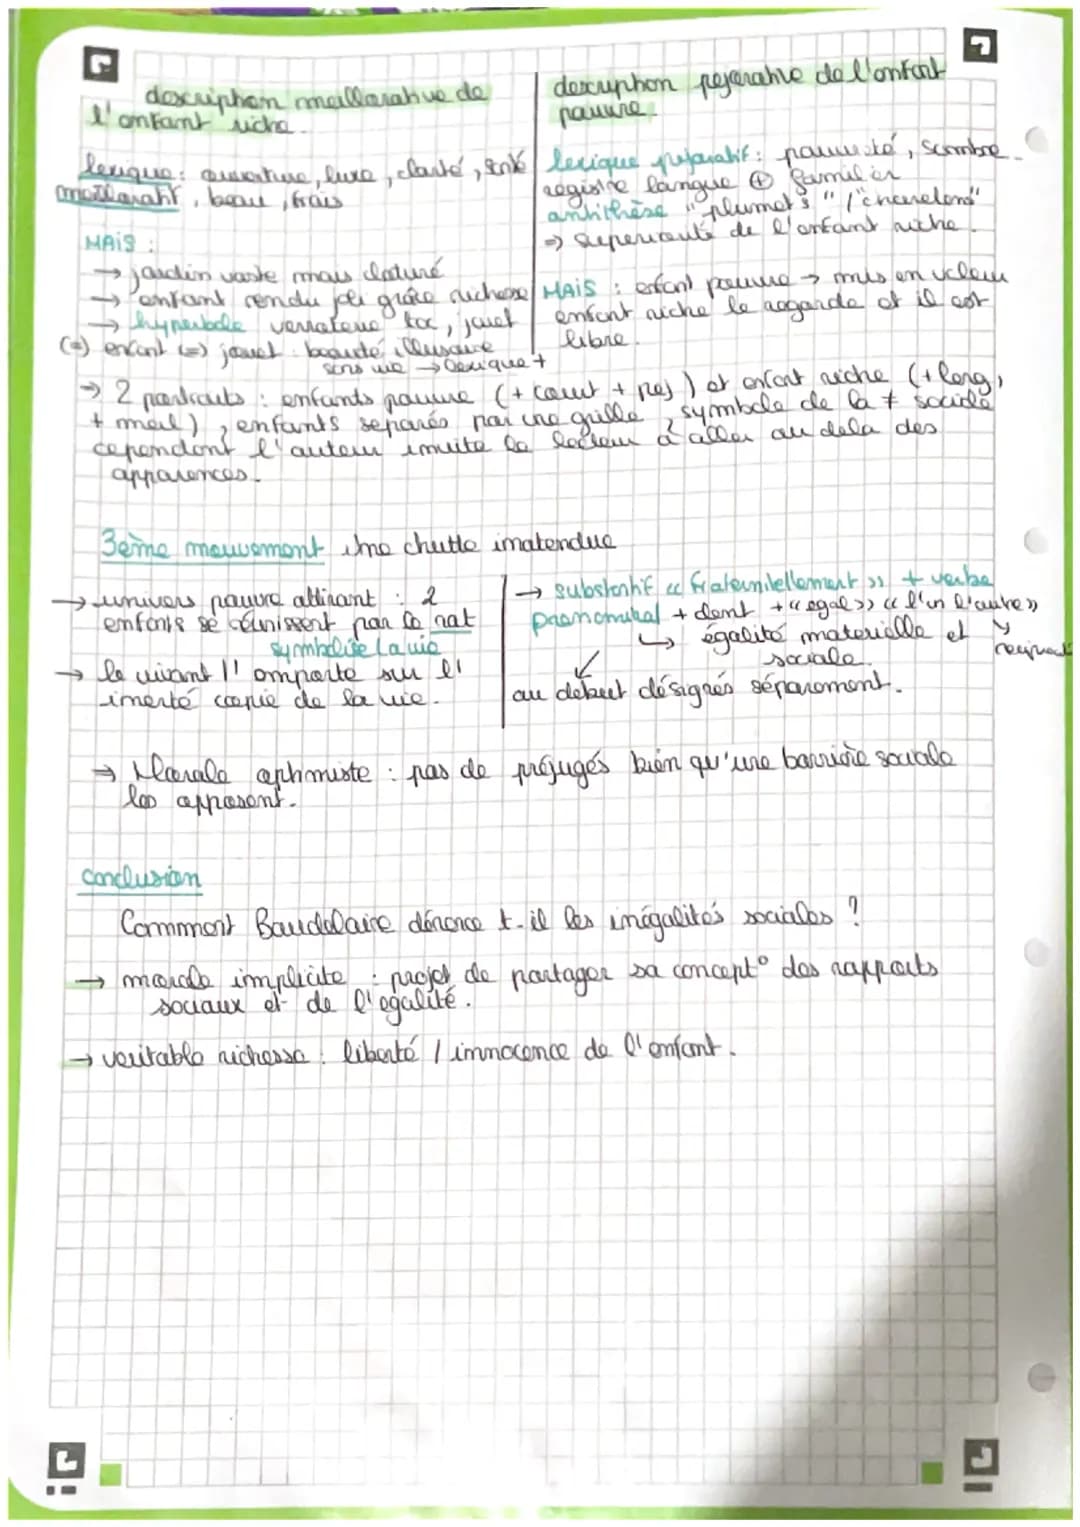 description mellarative de
l'enfant riche.
lexique : ouverture, luxe, clarté, santé
mellaratif, beau, frais
MAIS :
→ jardin vaste mais cloturé
→ enfant rendu joli grâce richesse
→ hyperbole verroterie toc, jouet
(=) enfant (=) jouet : beauté illusoire
sans vie → lexique +
description pejorative de l'enfant
pauvre.
lexique péjoratif : pauvreté, sombre.
registre langue ⊕ familier
antithèse "plumets" / "chardons"
=> superiorité de l'enfant riche.
MAIS : enfant pauvre → mis en valeur
enfant riche le regarde et il est
libre.
→ 2 portraits : enfants pauvre (+ court + pej) et enfant riche (+ long,
+ mel), enfants séparés par une grille, symbole de la ≠ sociale
cependant l'auteur invite le lecteur à aller au dela des
apparences.
3ème mouvement Une chutte inatendue
→ univers pauvre attirant : 2
enfants se réunissent par le rat
symbolise la vie
→ le vivant l'emporte sur l'
inerté copie de la vie.
→ substantif « fraternitellement » + verbe
pronominal + dont + « egal » « l'un l'autre »
↳ égalité materielle et
sociale.
au debut désignés séparement.
→ Morale optimiste : pas de préjugés bien qu'une barrière sociale
les opposent.
conclusion
Comment Baudelaire dénonce t-il les inégalités sociales ?
→ morale implicite : projet de partager sa concept° des rapports
sociaux et de l'égalité.
→ veritable richesse : liberté / innocence de l'enfant.